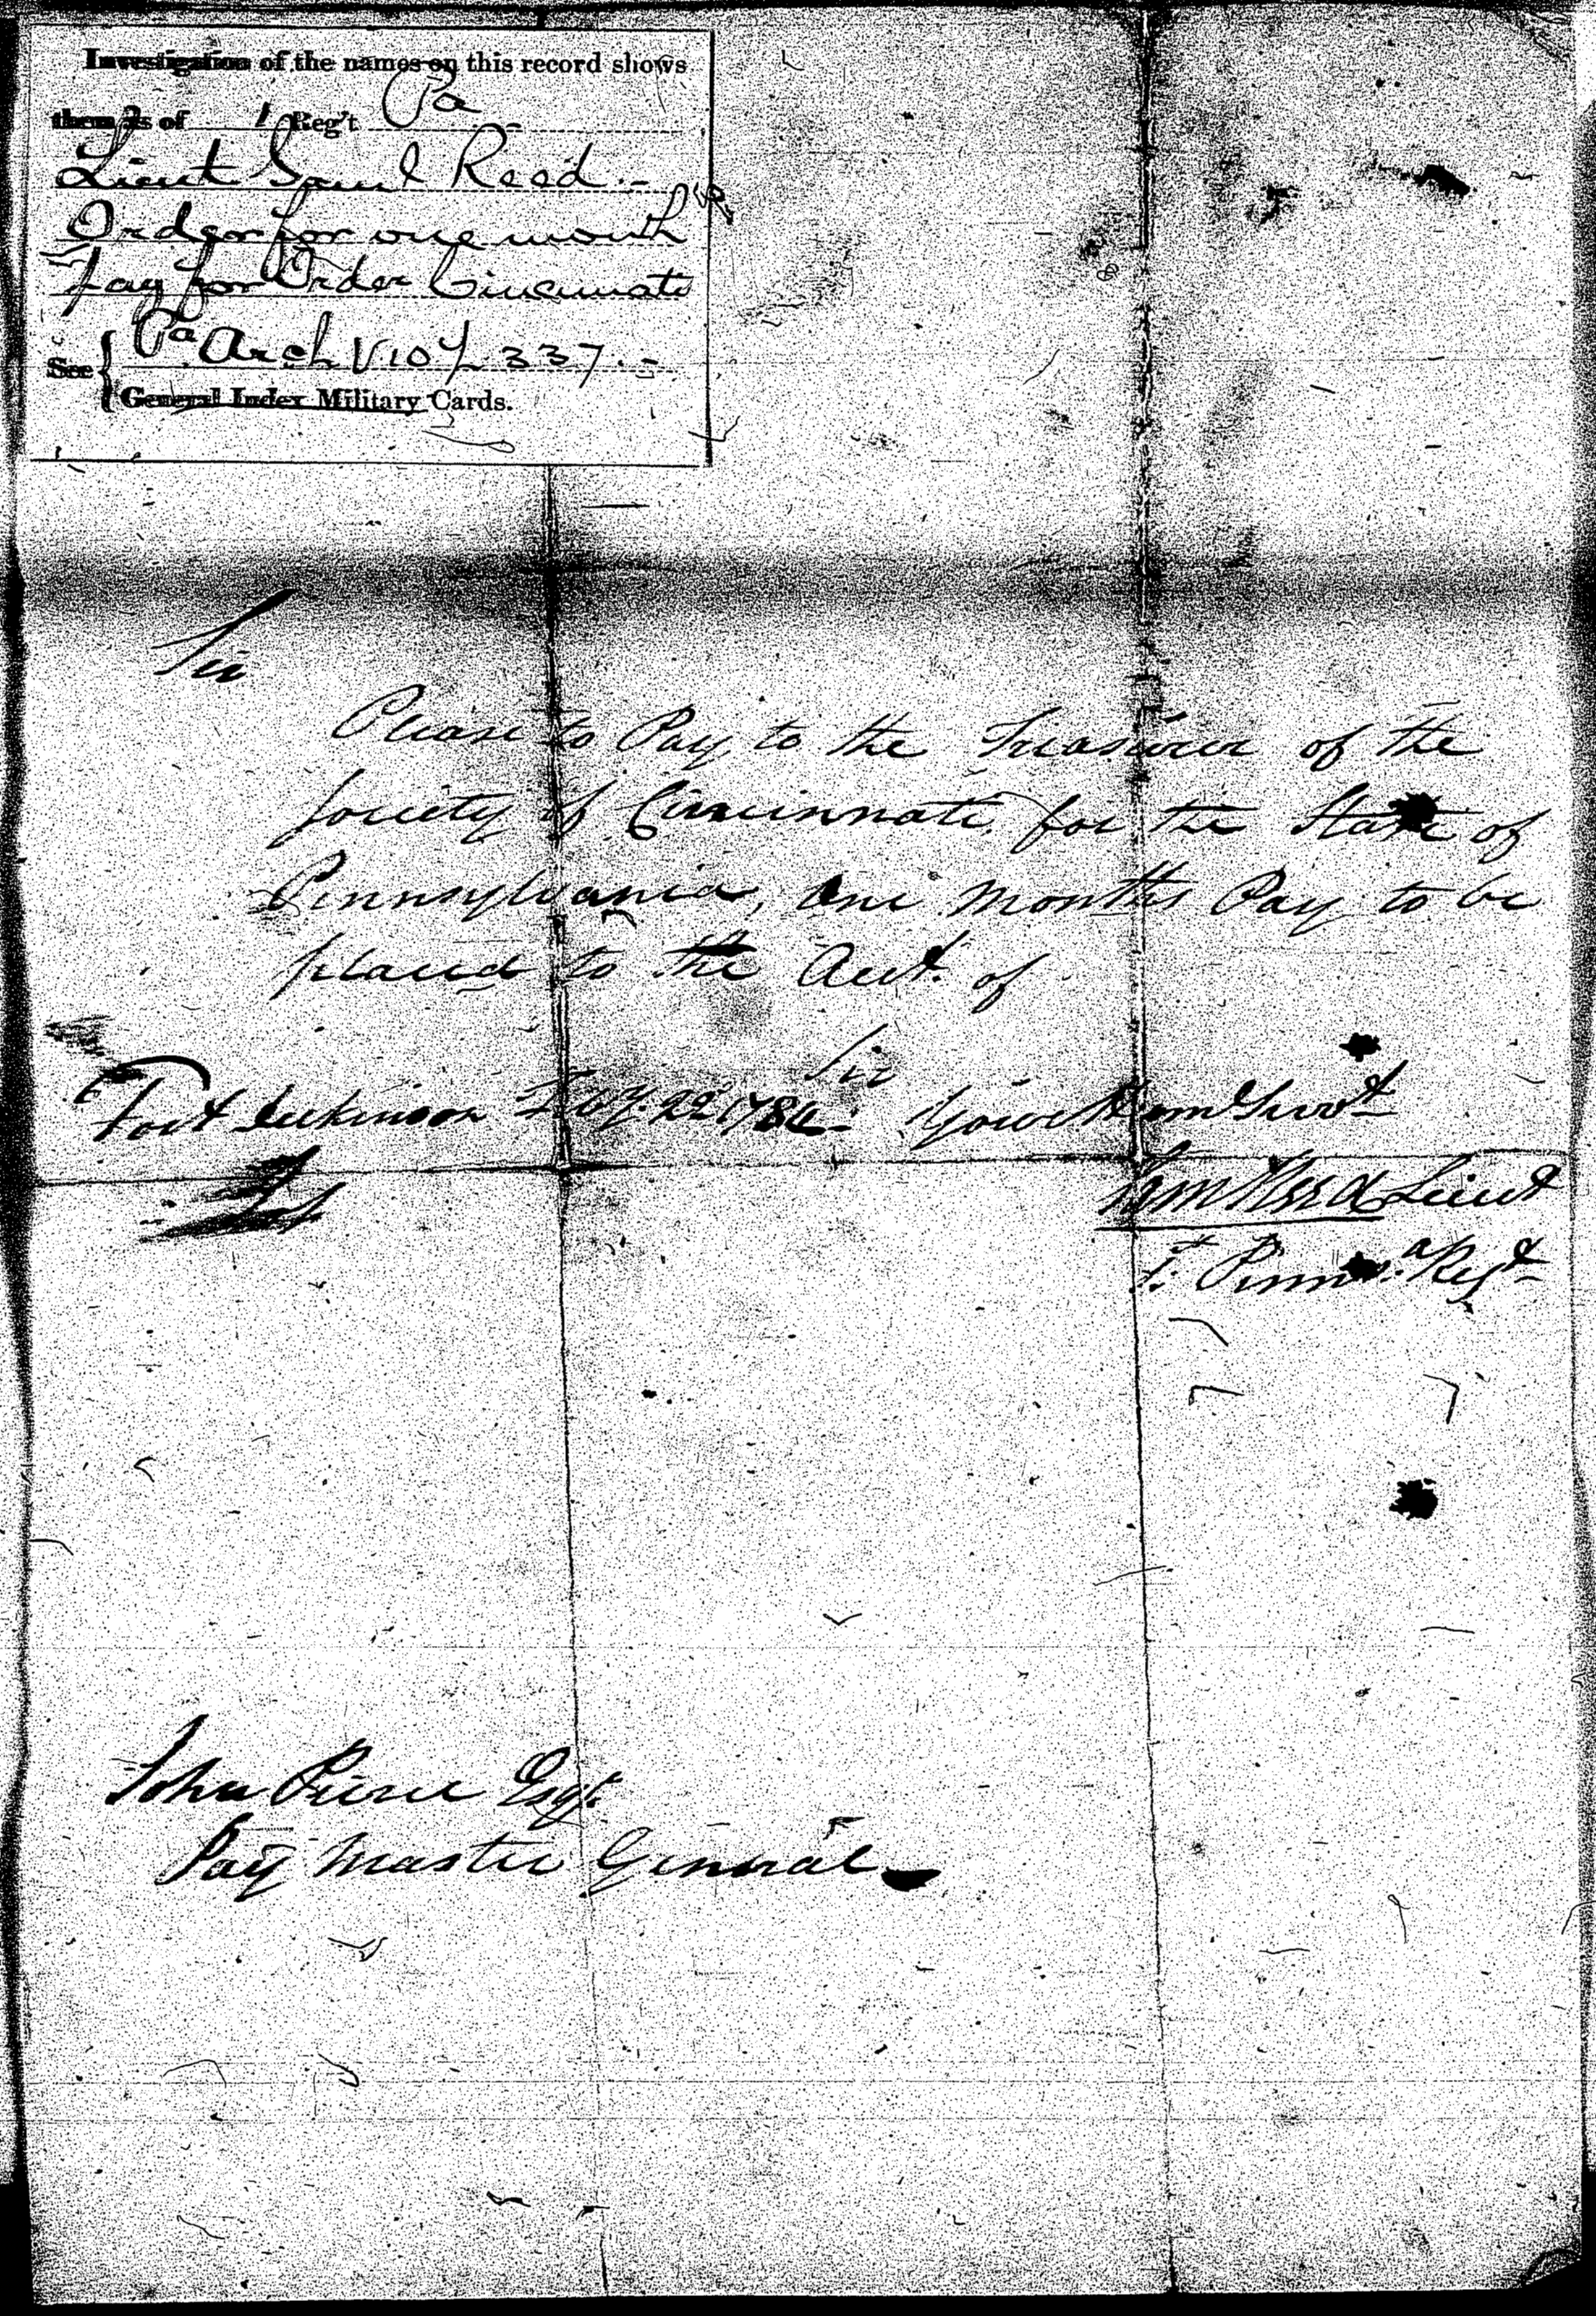 Investigation of the names on this record shows
them as of 1 Reg't Pa
Lieut Saml Reed -
Order for one month
pay for Order Cincinnati
See { Pa Arch V. 10 p 337. -
General Index Military Cards.
Sir
Please to Pay to the Treasurer of the
Society of Cincinnati, for the State of
Pennsylvania, One Months Pay to be
placed to the Acct. of
Sir
Fort Dickinson 22d 1784 - Your Hum Servt
Sam Reed Lieut
1t Penna. Regt
John Pierce Esqr.
Pay Master General